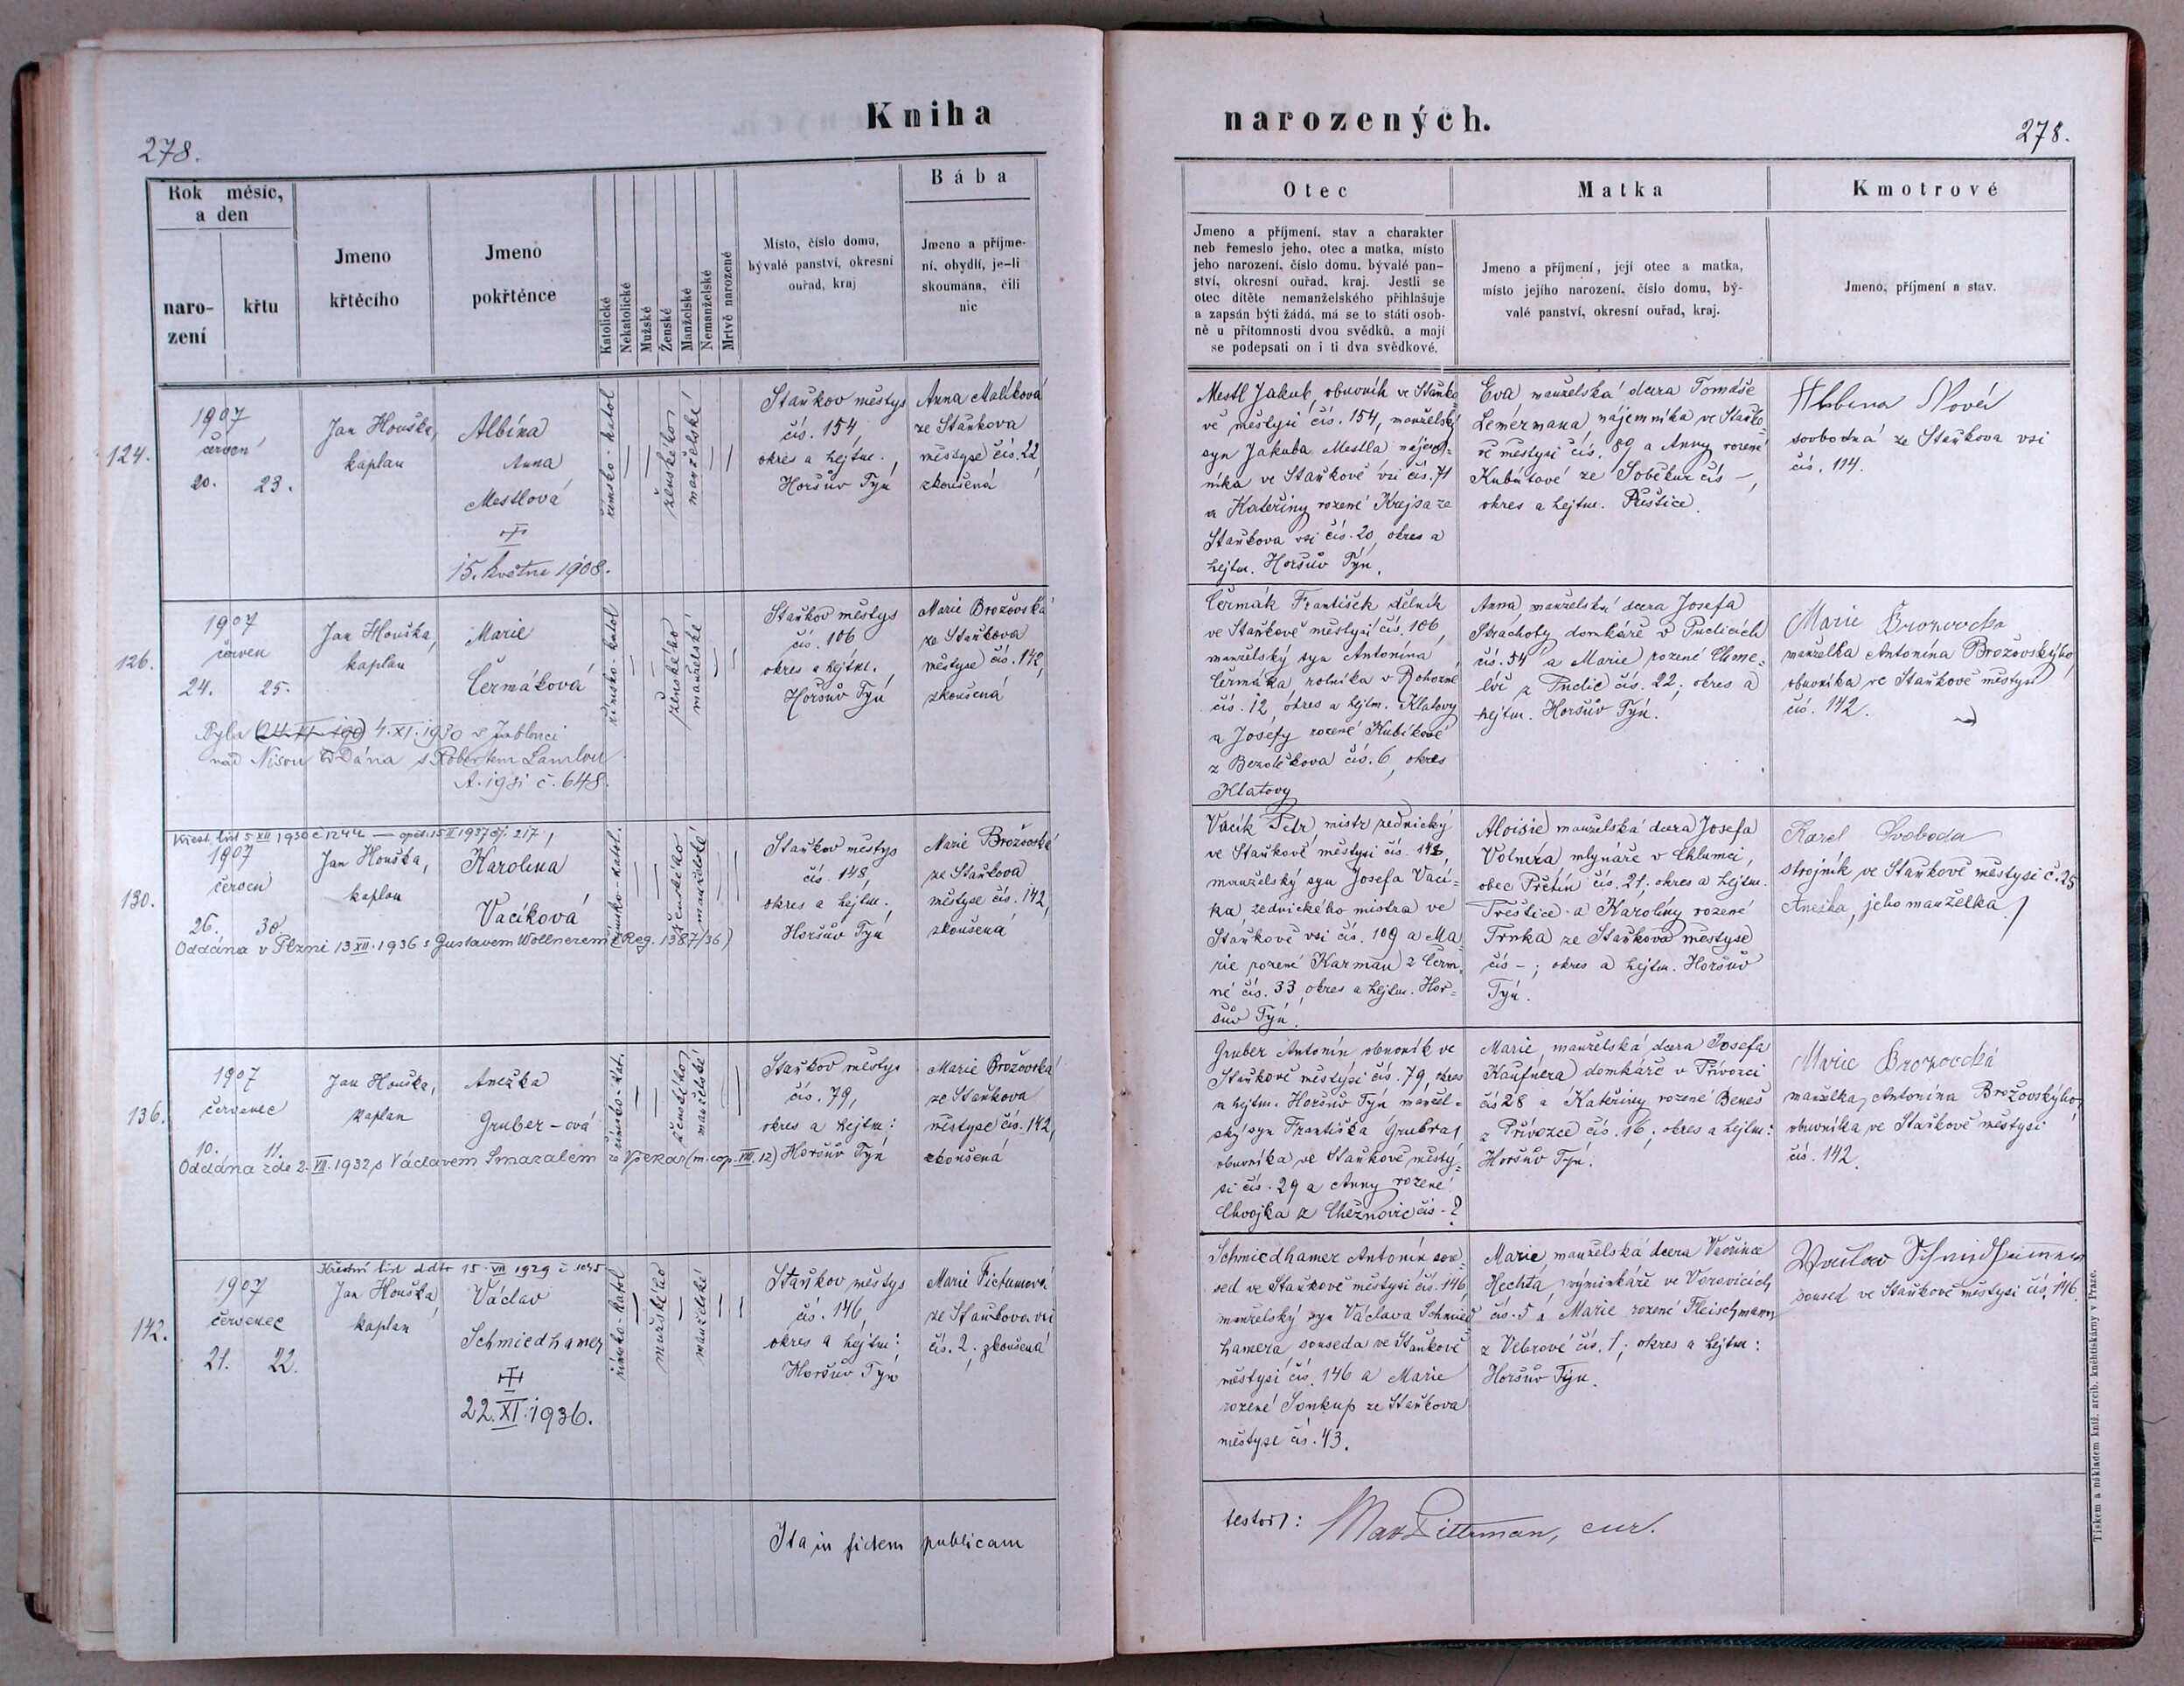 Kniha
narozených.
278.
278.
Rok měsíc,
a den
naro-
zení
křtu
Jmeno
křtěcího
Jmeno
pokřtěnce
Katolické
Nekatolické
Mužské
Ženské
Manželské
Nemanželské
Mrtvě narozené
Místo, číslo domu,
bývalé panství, okresní
ouřad, kraj
Bába
Jmeno a příjme-
ní, obydlí, je-li
skoumána, čili
nic
Otec
Jmeno a příjmení, stav a charakter
neb řemeslo jeho, otec a matka, místo
jeho narození, číslo domu, bývalé pan-
ství, okresní ouřad, kraj. Jestli se
otec dítěte nemanželského přihlašuje
a zapsán býti žádá, má se to státi osob-
ně u přítomnosti dvou svědků, a mají
se podepsati on i ti dva svědkové.
Matka
Jmeno a příjmení, její otec a matka,
místo jejího narození, číslo domu, bý-
valé panství, okresní ouřad, kraj.
Kmotrové
Jmeno, příjmení a stav.
124.
1907
červen
20. 23.
Jan Houška,
kaplan
Albína
Anna
Mestlová
15. května 1908.
římsko-katol
ženského
manželské
Staňkov městys
čís. 154
okres a hejtm.
Horšův Týn
Anna Malíková
ze Staňkova
městyse čís. 22
zkoušená
Mestl Jakub, obuvník ve Staňko-
vě městysi čís. 154, manželský
syn Jakuba Mestla nájem-
níka ve Staňkově vsi čís. 71
a Kateřiny rozené Krejsa ze
Staňkova vsi čís. 20, okres a
hejtm. Horšův Týn.
Eva manželská dcera Tomáše
Lemérmana nájemníka ve Staňko-
vě městysi čís. 89 a Anny rozené
Kubátové ze Soběkur čís –,
okres a hejtm. Přeštice.
Albina Nová
svobodná ze Staňkova vsi
čís. 114.
126.
1907
červen
24. 25.
Jan Houška,
kaplan
Marie
Čermáková
Byla 4.XI.1930 v Jablonci
nad Nisou oddána s Robertem
A. 1931 č. 648.
římsko-katol
ženského
manželské
Staňkov městys
čís. 106
okres a hejtm.
Horšův Týn
Marie Brožovská
ze Staňkova
městyse čís. 142,
zkoušená
Čermák František dělník
ve Staňkově městysi čís. 106,
manželský syn Antonína
Čermáka rolníka v
čís. 12, okres a hejtm. Klatovy
a Josefy rozené Kubíkové
z Bezděkova čís. 6, okres
Klatovy
Anna manželská dcera Josefa
Strachoty domkáře v Puclicích
čís. 54 a Marie rozené Chme-
z Puclic čís. 22; okres a
hejtm. Horšův Týn.
Marie Brozovska
manželka Antonína Brožovskýho,
obuvníka ve Staňkově městysi
čís. 142.
130.
Křest. list 5 XII 1930 č 1244 — opět. 15 II 1937 čj. 217,
1907
červen
26. 30.
Jan Houška,
kaplan
Karolina
Vacíková
Oddána v Plzni 13 XII. 1936 s Gustavem Wöllnerem (Reg. 1387/36)
římsko-katol.
ženského
manželské
Staňkov městys
čís. 148,
okres a hejtm.
Horšův Týn
Marie Brožovská
ze Staňkova
městyse čís. 142,
zkoušená
Vacík Petr mistr zednický
ve Staňkově městysi čís. 148,
manželský syn Josefa Vací-
ka, zednického mistra ve
Staňkově vsi čís. 109 a Ma-
rie rozené Karman z Čerm-
né čís. 33, okres a hejtm. Hor-
šův Týn.
Aloisie manželská dcera Josefa
mlynáře v Chlumci,
obec Přchín čís. 21; okres a hejtm.
Přeštice a Karolíny rozené
Trnka ze Staňkova městyse
čís –; okres a hejtm. Horšův
Týn.
Karel Svoboda
strojník ve Staňkově městysi č. 25
Anežka, jeho manželka
136.
1907
červenec
10. 11.
Jan Houška,
kaplan
Anežka
Gruber-ová
Oddána zde 2. VII. 1932 s Václavem Smazalem z Vřeskov (m. cop. VIII. 12)
římsko-kat.
ženského
manželské
Staňkov městys
čís. 79,
okres a hejtm:
Horšův Týn
Marie Brožovská
ze Staňkova
městyse čís. 142,
zkoušená
Gruber Antonín obuvník ve
Staňkově městysi čís. 79, okres
a hejtm. Horšův Týn manžel-
ský syn Františka Grubra,
obuvníka ve Staňkově městy-
si čís. 29 a Anny rozené
Chvojka z čís - ?
Marie, manželská dcera Josefa
Kaufnera domkáře v Přívozci
čís 28 a Kateřiny rozené Beneš
z Přívozce čís. 16; okres a hejtm:
Horšův Týn.
Marie Brozovská
manželka Antonína Brožovskýho,
obuvníka ve Staňkově městysi
čís. 142.
142.
Křestní list ddto 15. VII 1929 č. 1095
1907
červenec
21. 22.
Jan Houška
kaplan
Václav
Schmiedhamer
22. XI. 1936.
římsko-katol
mužského
manželské
Staňkov městys
čís. 146,
okres a hejtm:
Horšův Týn
Marie Fictumová
ze Staňkova vsi
čís. 2, zkoušená
Schmiedhamer Antonín sou-
sed ve Staňkově městysi čís. 146,
manželský syn Václava Schmied-
hamera souseda ve Staňkově
městysi čís. 146 a Marie
rozené Soukup ze Staňkova
městyse čís. 43.
Marie, manželská dcera Vavřince
Hechta, výminkáře ve Verovicích
čís. 5 a Marie rozené Fleischmann
z Vebrové čís. 1; okres a hejtm:
Horšův Týn.
Václav Schmidhamer
soused ve Staňkově městysi čís. 146.
Ita in fidem publicam
testor: Max Pittrman, cur.
Tiskem a nákladem kníž. arcib. knihtiskárny v Praze.